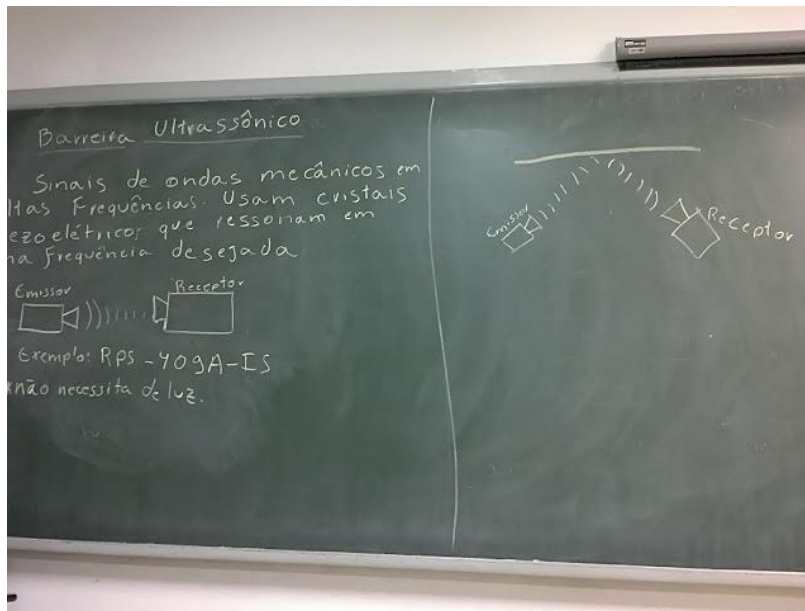 Barreira Ultrassônico
Sinais de ondas mecânicos em
ltas Frequências. Usam cristais
ezoelétricos que ressonam em
na frequência desejada
Emissor Receptor
Exemplo: RPS-409A-IS
*não necessita de luz.
Emissor
Receptor